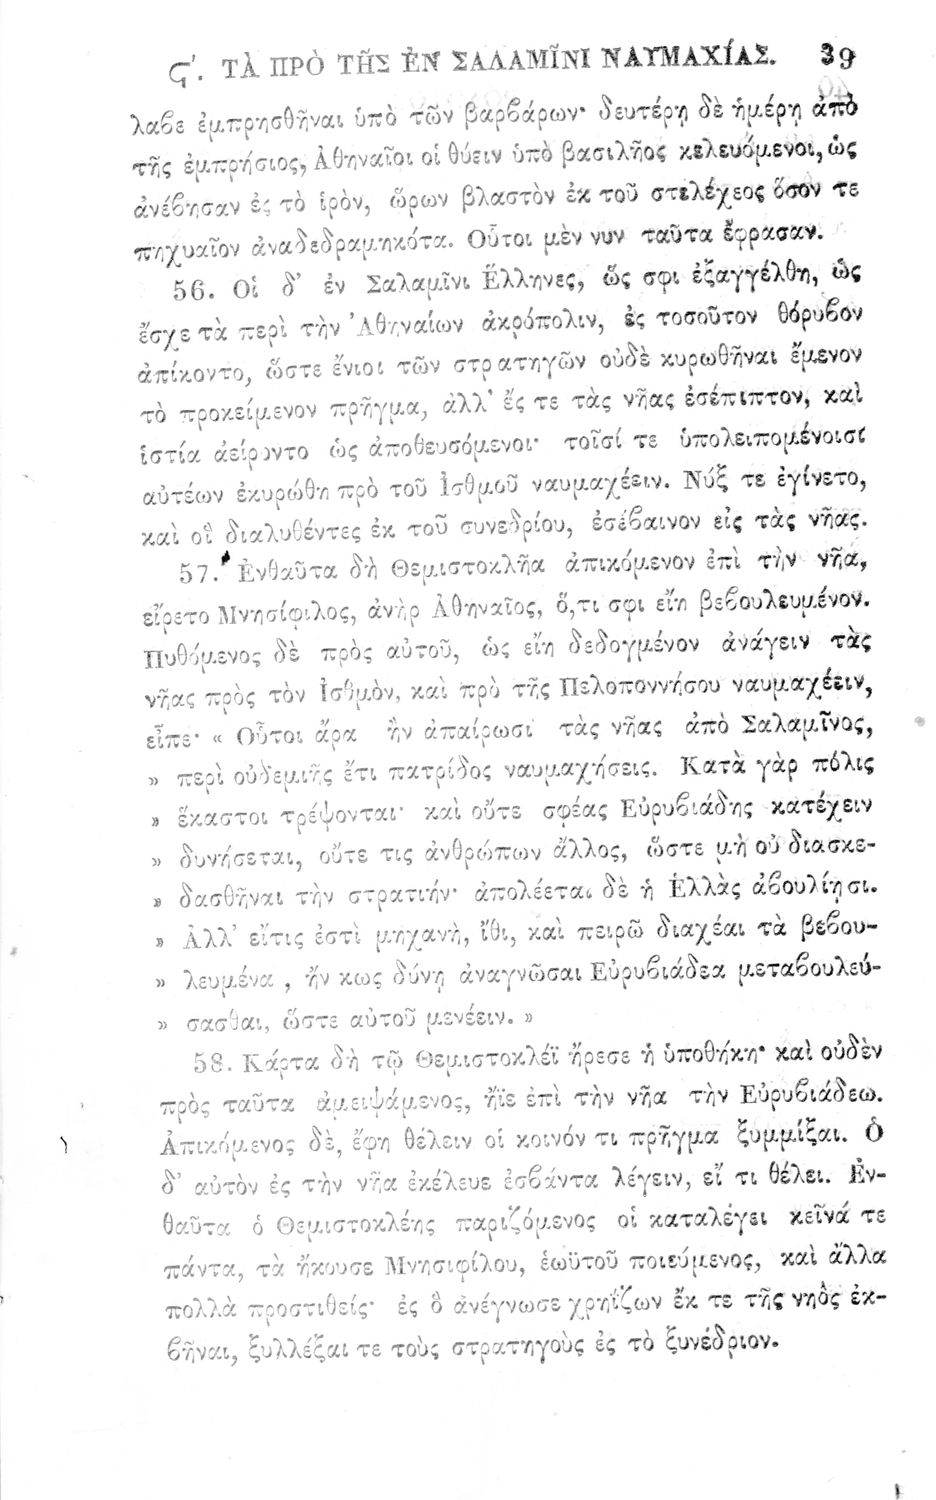 ϛ′. ΤᾺ ΠΡῸ ΤΗ͂Σ ἘΝ ΣΑΛΑΜΙ͂ΝΙ ΝΑΥΜΑΧΊΑΣ. 39
λαϐε ἐμπρησθῆναι ὑπὸ τῶν βαρϐάρων· δευτέρῃ δὲ ἡμέρῃ ἀπὸ
τῆς ἐμπρήσιος, Ἀθηναῖοι οἱ θύειν ὑπὸ βασιλῆος κελευόμενοι, ὡς
ἀνέϐησαν ἐς τὸ ἱρὸν, ὥρων βλαστὸν ἐκ τοῦ στελέχεος ὅσον τε
πηχυαῖον ἀναδεδραμηκότα. Οὗτοι μέν νυν ταῦτα ἔφρασαν.
56. Οἱ δ’ ἐν Σαλαμῖνι Ἕλληνες, ὥς σφι ἐξαγγέλθη, ὡς
ἔσχε τὰ περὶ τὴν Ἀθηναίων ἀκρόπολιν, ἐς τοσοῦτον θόρυϐον
ἀπίκοντο, ὥστε ἔνιοι τῶν στρατηγῶν οὐδὲ κυρωθῆναι ἔμενον
τὸ προκείμενον πρῆγμα, ἀλλ’ ἔς τε τὰς νῆας ἐσέπιπτον, καὶ
ἱστία ἀείροντο ὡς ἀποθευσόμενοι· τοῖσί τε ὑπολειπομένοισι
αὐτέων ἐκυρώθη πρὸ τοῦ Ἰσθμοῦ ναυμαχέειν. Νύξ τε ἐγίνετο,
καὶ οἳ διαλυθέντες ἐκ τοῦ συνεδρίου, ἐσέϐαινον εἰς τὰς νῆας.
57. Ἐνθαῦτα δὴ Θεμιστοκλῆα ἀπικόμενον ἐπὶ τὴν νῆα,
εἴρετο Μνησίφιλος, ἀνὴρ Ἀθηναῖος, ὅ,τι σφι εἴη βεϐουλευμένον.
Πυθόμενος δὲ πρὸς αὐτοῦ, ὡς εἴη δεδογμένον ἀνάγειν τὰς
νῆας πρὸς τὸν Ἰσθμὸν, καὶ πρὸ τῆς Πελοποννήσου ναυμαχέειν,
εἶπε· « Οὗτοι ἄρα ἢν ἀπαίρωσι τὰς νῆας ἀπὸ Σαλαμῖνος,
» περὶ οὐδεμιῆς ἔτι πατρίδος ναυμαχήσεις. Κατὰ γὰρ πόλις
» ἕκαστοι τρέψονται· καὶ οὔτε σφέας Εὐρυϐιάδης κατέχειν
» δυνήσεται, οὔτε τις ἀνθρώπων ἄλλος, ὥστε μὴ οὐ διασκε-
» δασθῆναι τὴν στρατιήν· ἀπολέεται δὲ ἡ Ἑλλὰς ἀϐουλίῃσι.
» Ἀλλ’ εἴτις ἐστὶ μηχανὴ, ἴθι, καὶ πειρῶ διαχέαι τὰ βεϐου-
» λευμένα, ἤν κως δύνῃ ἀναγνῶσαι Εὐρυϐιάδεα μεταϐουλεύ-
» σασθαι, ὥστε αὐτοῦ μενέειν. »
58. Κάρτα δὴ τῷ Θεμιστοκλέϊ ἤρεσε ἡ ὑποθήκη· καὶ οὐδὲν
πρὸς ταῦτα ἀμειψάμενος, ἤϊε ἐπὶ τὴν νῆα τὴν Εὐρυϐιάδεω.
Ἀπικόμενος δὲ, ἔφη θέλειν οἱ κοινόν τι πρῆγμα ξυμμίξαι. Ὁ
δ’ αὐτὸν ἐς τὴν νῆα ἐκέλευε ἐσϐάντα λέγειν, εἴ τι θέλει. Ἐν-
θαῦτα ὁ Θεμιστοκλέης παριζόμενος οἱ καταλέγει κεῖνά τε
πάντα, τὰ ἤκουσε Μνησιφίλου, ἑωϋτοῦ ποιεύμενος, καὶ ἄλλα
πολλὰ προστιθείς· ἐς ὃ ἀνέγνωσε χρηΐζων ἔκ τε τῆς νηὸς ἐκ-
ϐῆναι, ξυλλέξαι τε τοὺς στρατηγοὺς ἐς τὸ ξυνέδριον.